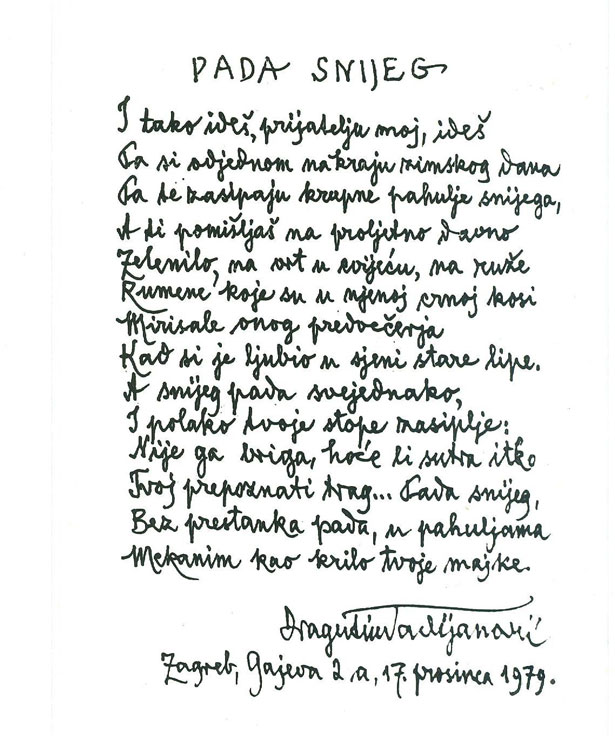 PADA SNIJEG
I tako ideš, prijatelju moj, ideš
Pa si odjednom na kraju zimskog dana
Pa te zasipaju krupne pahulje snijega,
A ti pomišljaš na proljetno davno
Zelenilo, na vrt u cvijeću, na ruže
Rumene koje su u njenoj crnoj kosi
Mirisale onog predvečerja
Kad si je ljubio u sjeni stare lipe.
A snijeg pada svejednako,
I polako tvoje stope zasiplje:
Nije ga briga, hoće li sutra itko
Tvoj prepoznati trag... Pada snijeg,
Bez prestanka pada, u pahuljama
Mekanim kao krilo tvoje majke.
Dragutin Tadijanović
Zagreb, Gajeva 2 a, 17. prosinca 1979.